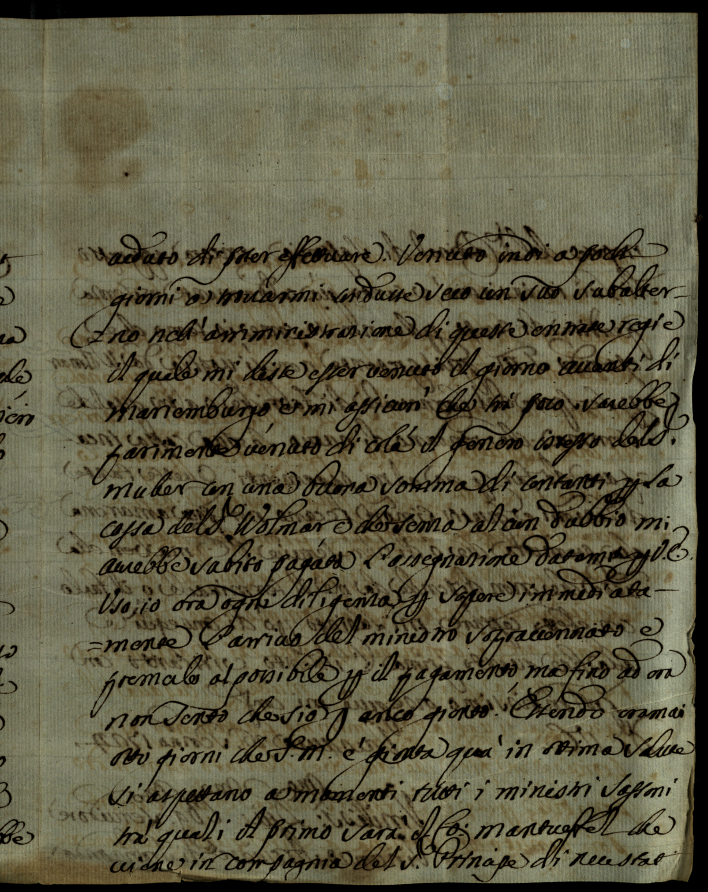 creduto di poter effettuare. Venuto indi a pochi
giorni a trovarmi condusse seco un suo subalter-
no nell'amministrazione di queste entrate regie
il quale mi disse esser venuto il giorno avanti di
mariemburgo et mi assicurò che frà poco sarebbe
parimente venuto di colà il genero istesso del S.
muler con una buona somma di contanti p la
cassa del S.r Wolmar e che senza alcun dubbio mi
avrebbe subito pagata l'assegnazione datemi p V.E.
Uso io ora ogni diligenza p sapere immediata-
=mente l'arrivo del ministro sopraccennato e
premerlo al possibile p il pagamento ma fino ad ora
non sento che sia p anco gionto. Essendo oramai
otto giorni che S.M. è gionta quà in ottima salute
si aspettano a momenti tutti i ministri sassoni
trà quali il primo sarà il Co: manteuffel che
viene in compagnia del S.r Principe di neustat